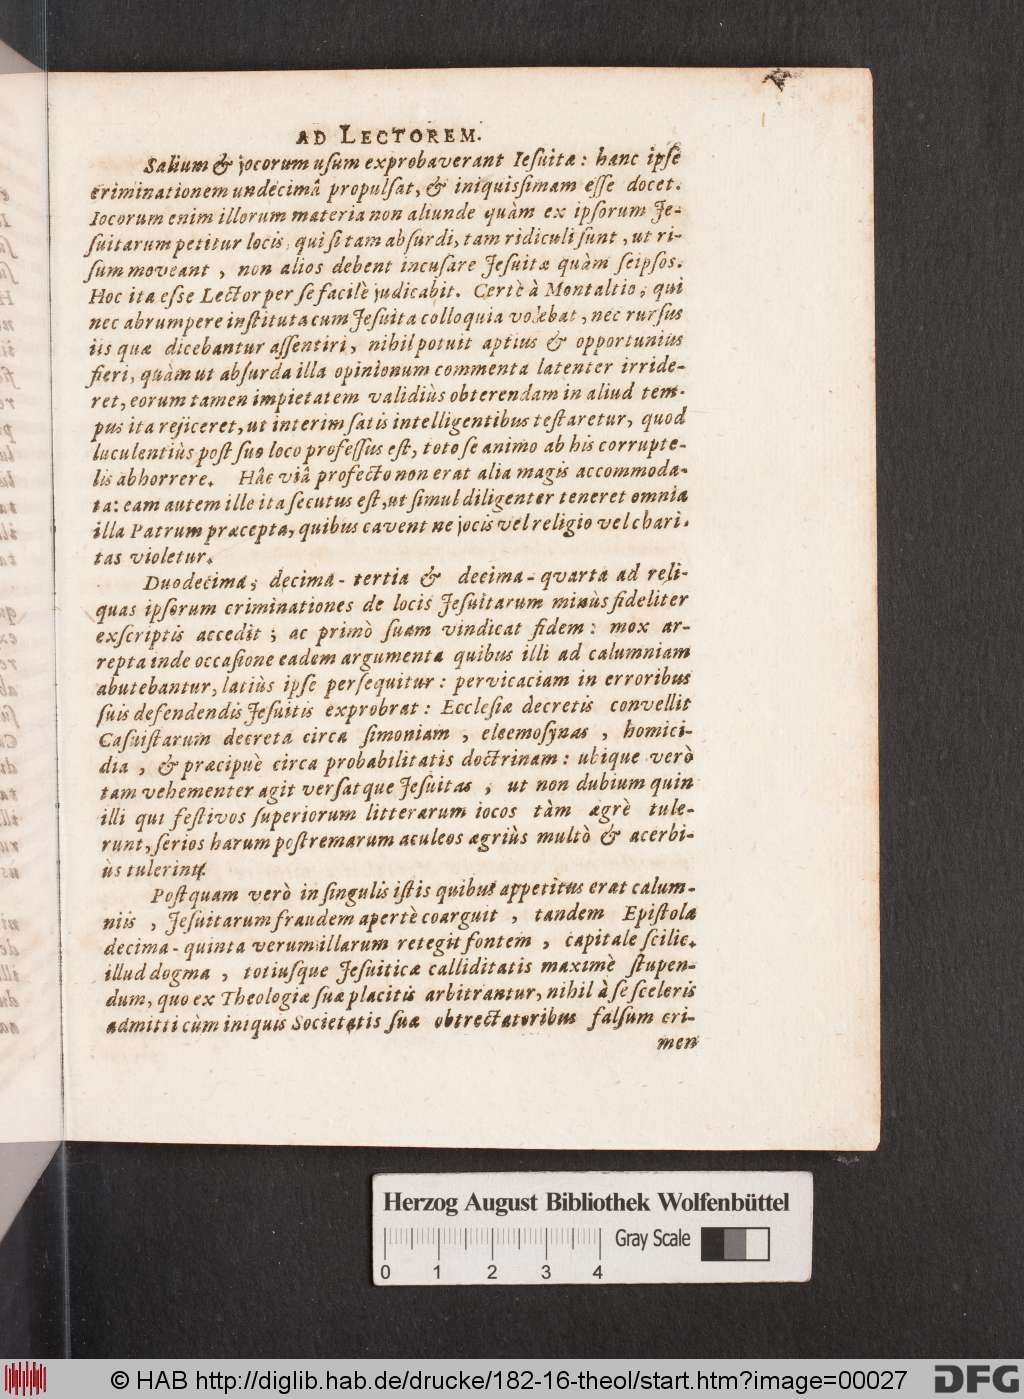 AD LECTOREM.
Salium & jocorum usum exprobaverant Iesuitæ: hanc ipse
criminationem undecimâ propulsat, & iniquissimam esse docet.
Iocorum enim illorum materia non aliunde quàm ex ipsorum Je-
suitarum petitur locis, qui si tam absurdi, tam ridiculi sunt, ut ri-
sum moveant, non alios debent incusare Jesuitæ quàm seipsos.
Hoc ita esse Lector per se facilè judicabit. Certè à Montaltio, qui
nec abrumpere instituta cum Jesuita colloquia volebat, nec rursus
iis quæ dicebantur assentiri, nihil potuit aptius & opportunius
fieri, quàm ut absurda illa opinionum commenta latenter irride-
ret, eorum tamen impietatem validiùs obterendam in aliud tem-
pus ita rejiceret, ut interim satis intelligentibus testaretur, quod
luculentiùs post suo loco professus est, toto se animo ab his corrupte-
lis abhorrere. Hâc viâ profecto non erat alia magis accommoda-
ta: eam autem ille ita secutus est, ut simul diligenter teneret omnia
illa Patrum præcepta, quibus cavent ne jocis vel religio vel chari-
tas violetur.
Duodecima, decima-tertia & decima-qvarta ad reli-
quas ipsorum criminationes de locis Jesuitarum minùs fideliter
exscriptis accedit; ac primò suam vindicat fidem: mox ar-
repta inde occasione eadem argumenta quibus illi ad calumniam
abutebantur, latiùs ipse persequitur: pervicaciam in erroribus
suis defendendis Jesuitis exprobrat: Ecclesiæ decretis convellit
Casuistarum decreta circa simoniam, eleemosynas, homici-
dia, & præcipuè circa probabilitatis doctrinam: ubique verò
tam vehementer agit versatque Jesuitas, ut non dubium quin
illi qui festivos superiorum litterarum iocos tàm ægrè tule-
runt, serios harum postremarum aculeos ægriùs multò & acerbi-
ùs tulerint.
Postquam verò in singulis istis quibus appetitus erat calum-
niis, Jesuitarum fraudem apertè coarguit, tandem Epistola
decima-quinta verum illarum retegit fontem, capitale scilic.
illud dogma, totiusque Jesuiticæ calliditatis maximè stupen-
dum, quo ex Theologiæ suæ placitis arbitrantur, nihil à se sceleris
admitti cùm iniquis Societatis suæ obtrectatoribus falsum cri-
men
Herzog August Bibliothek Wolfenbüttel
Gray Scale
0 1 2 3 4
© HAB http://diglib.hab.de/drucke/182-16-theol/start.htm?image=00027
DFG